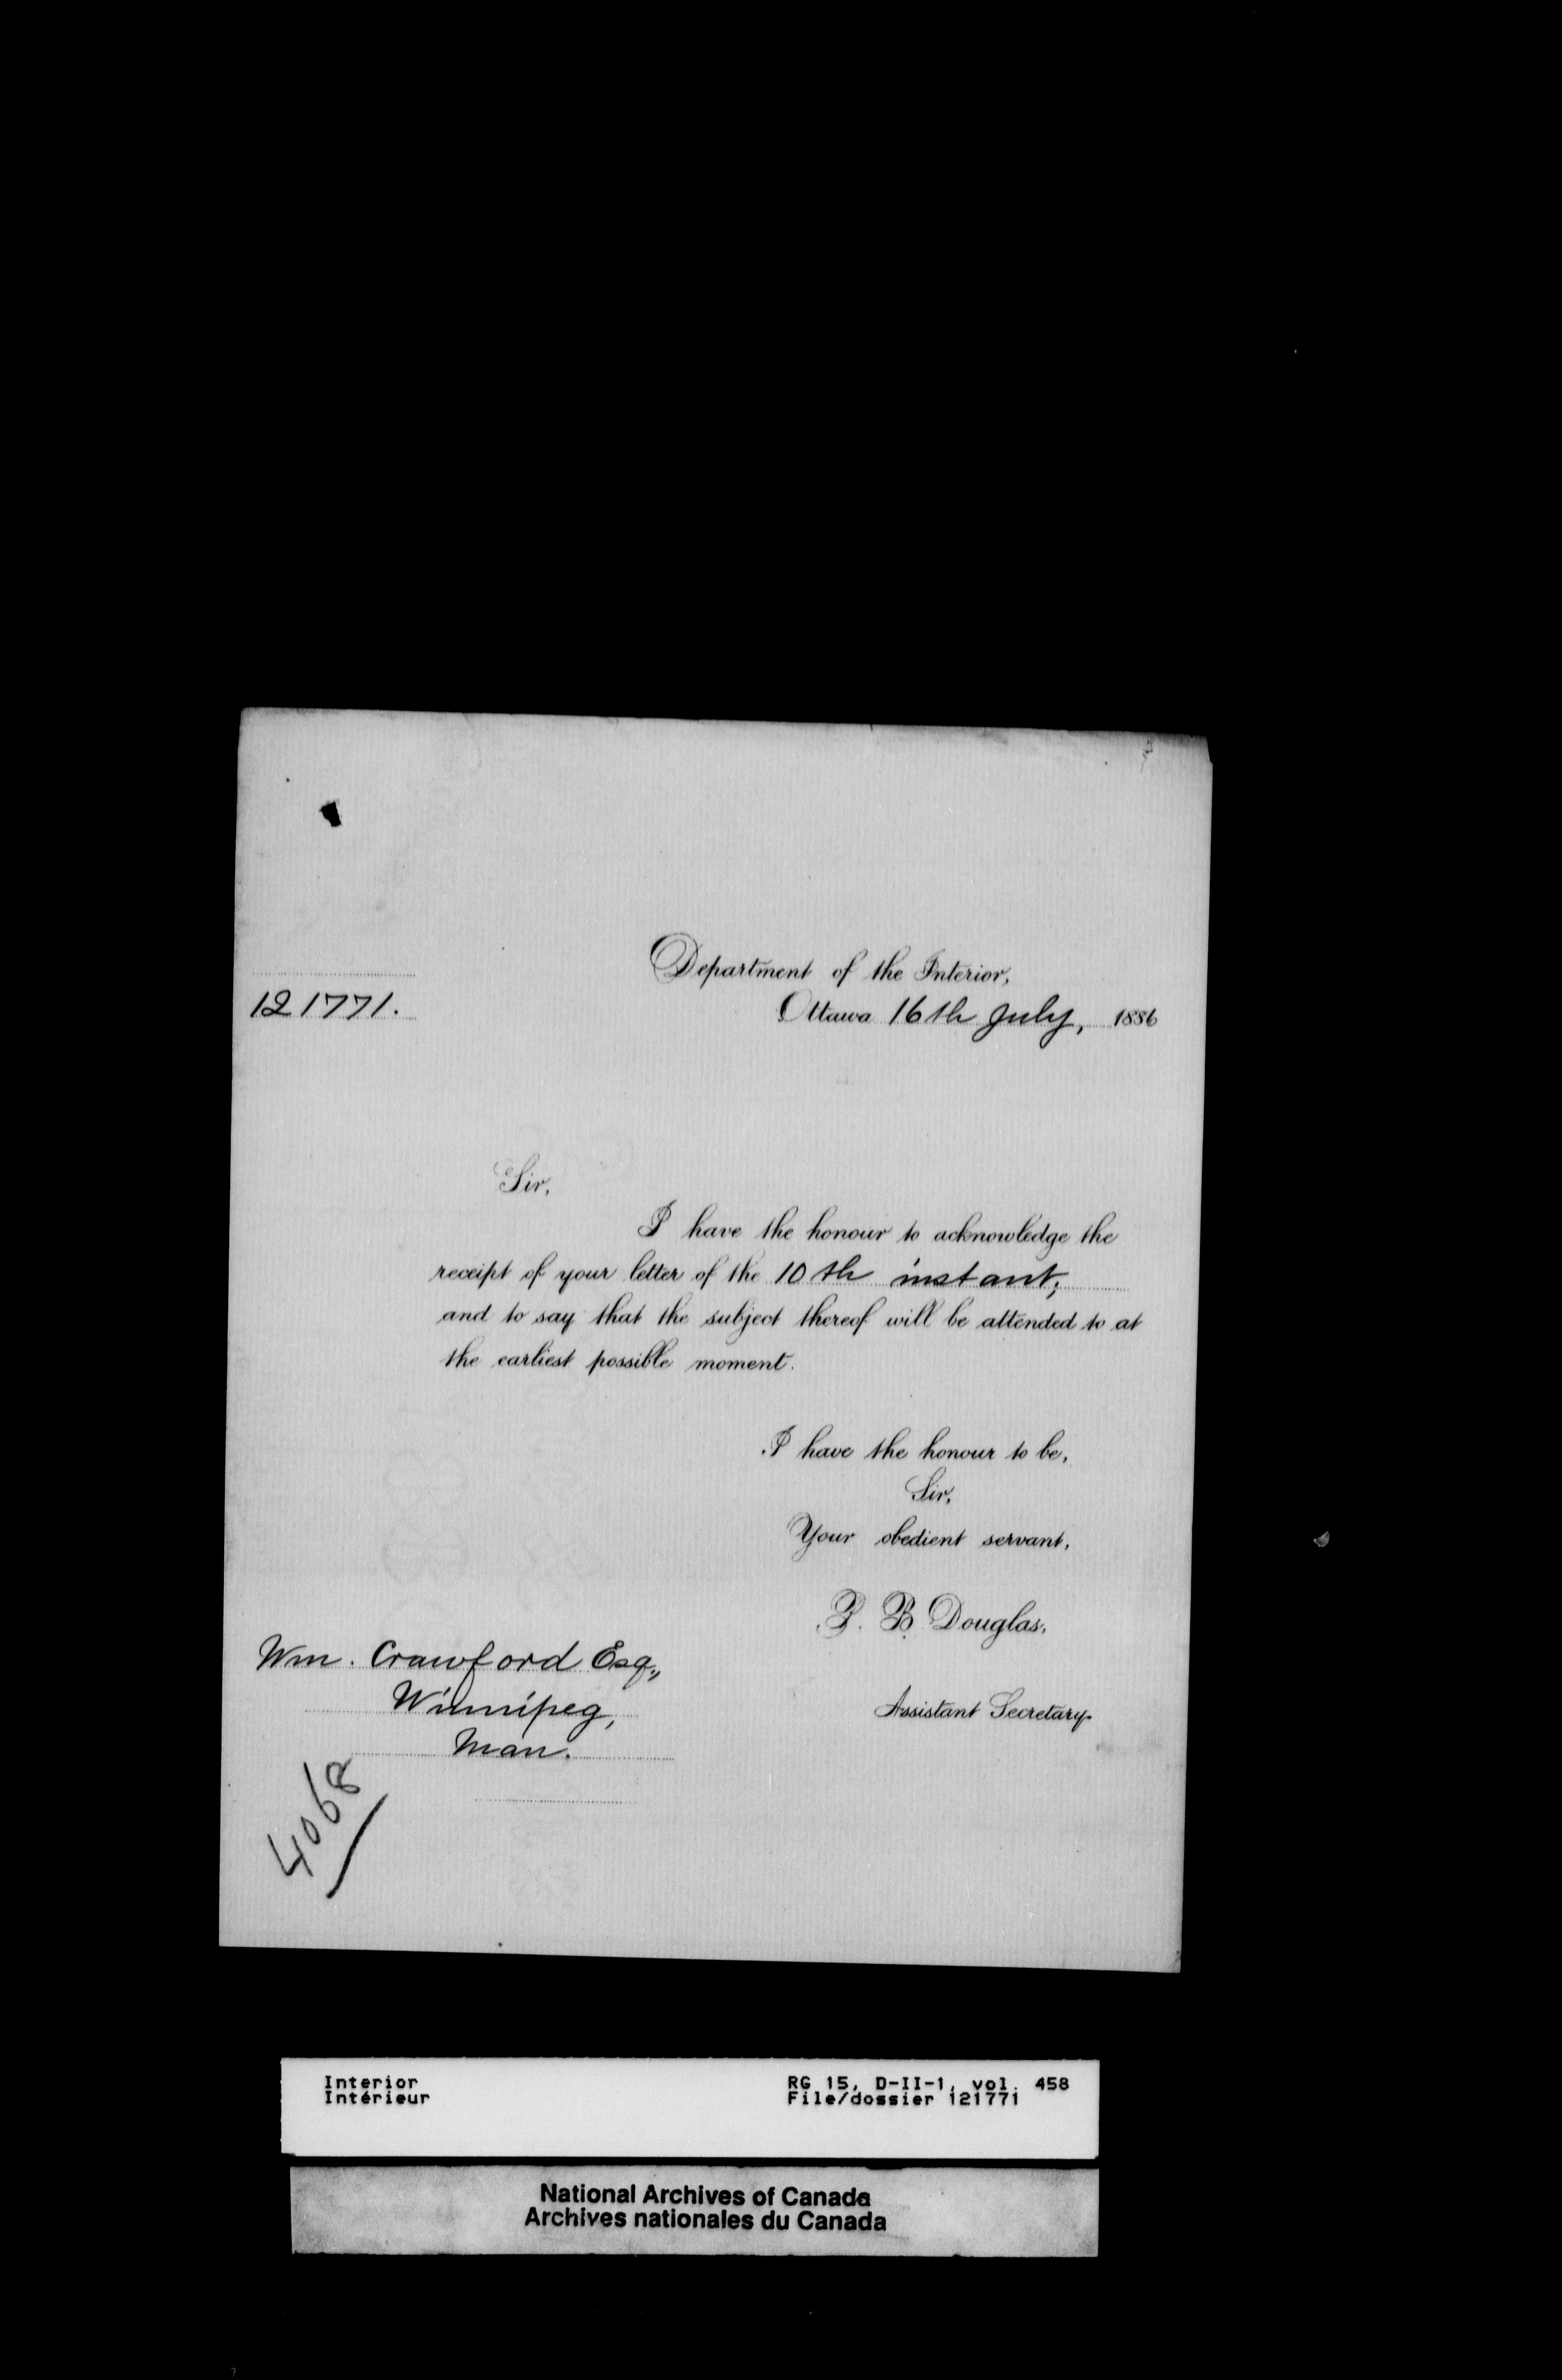 Department of the Interior,
121771.
Ottawa 16th July, 1886
Sir,
I have the honour to acknowledge the
receipt of your letter of the 10th instant,
and to say that the subject thereof will be attended to at
the earliest possible moment.
I have the honour to be,
Sir,
Your obedient servant,
P. B. Douglas,
Assistant Secretary.
Wm. Crawford Esq.,
Winnipeg,
Man.
4068
Interior
Intérieur
RG 15, D-II-1, vol. 458
File/dossier 121771
National Archives of Canada
Archives nationales du Canada